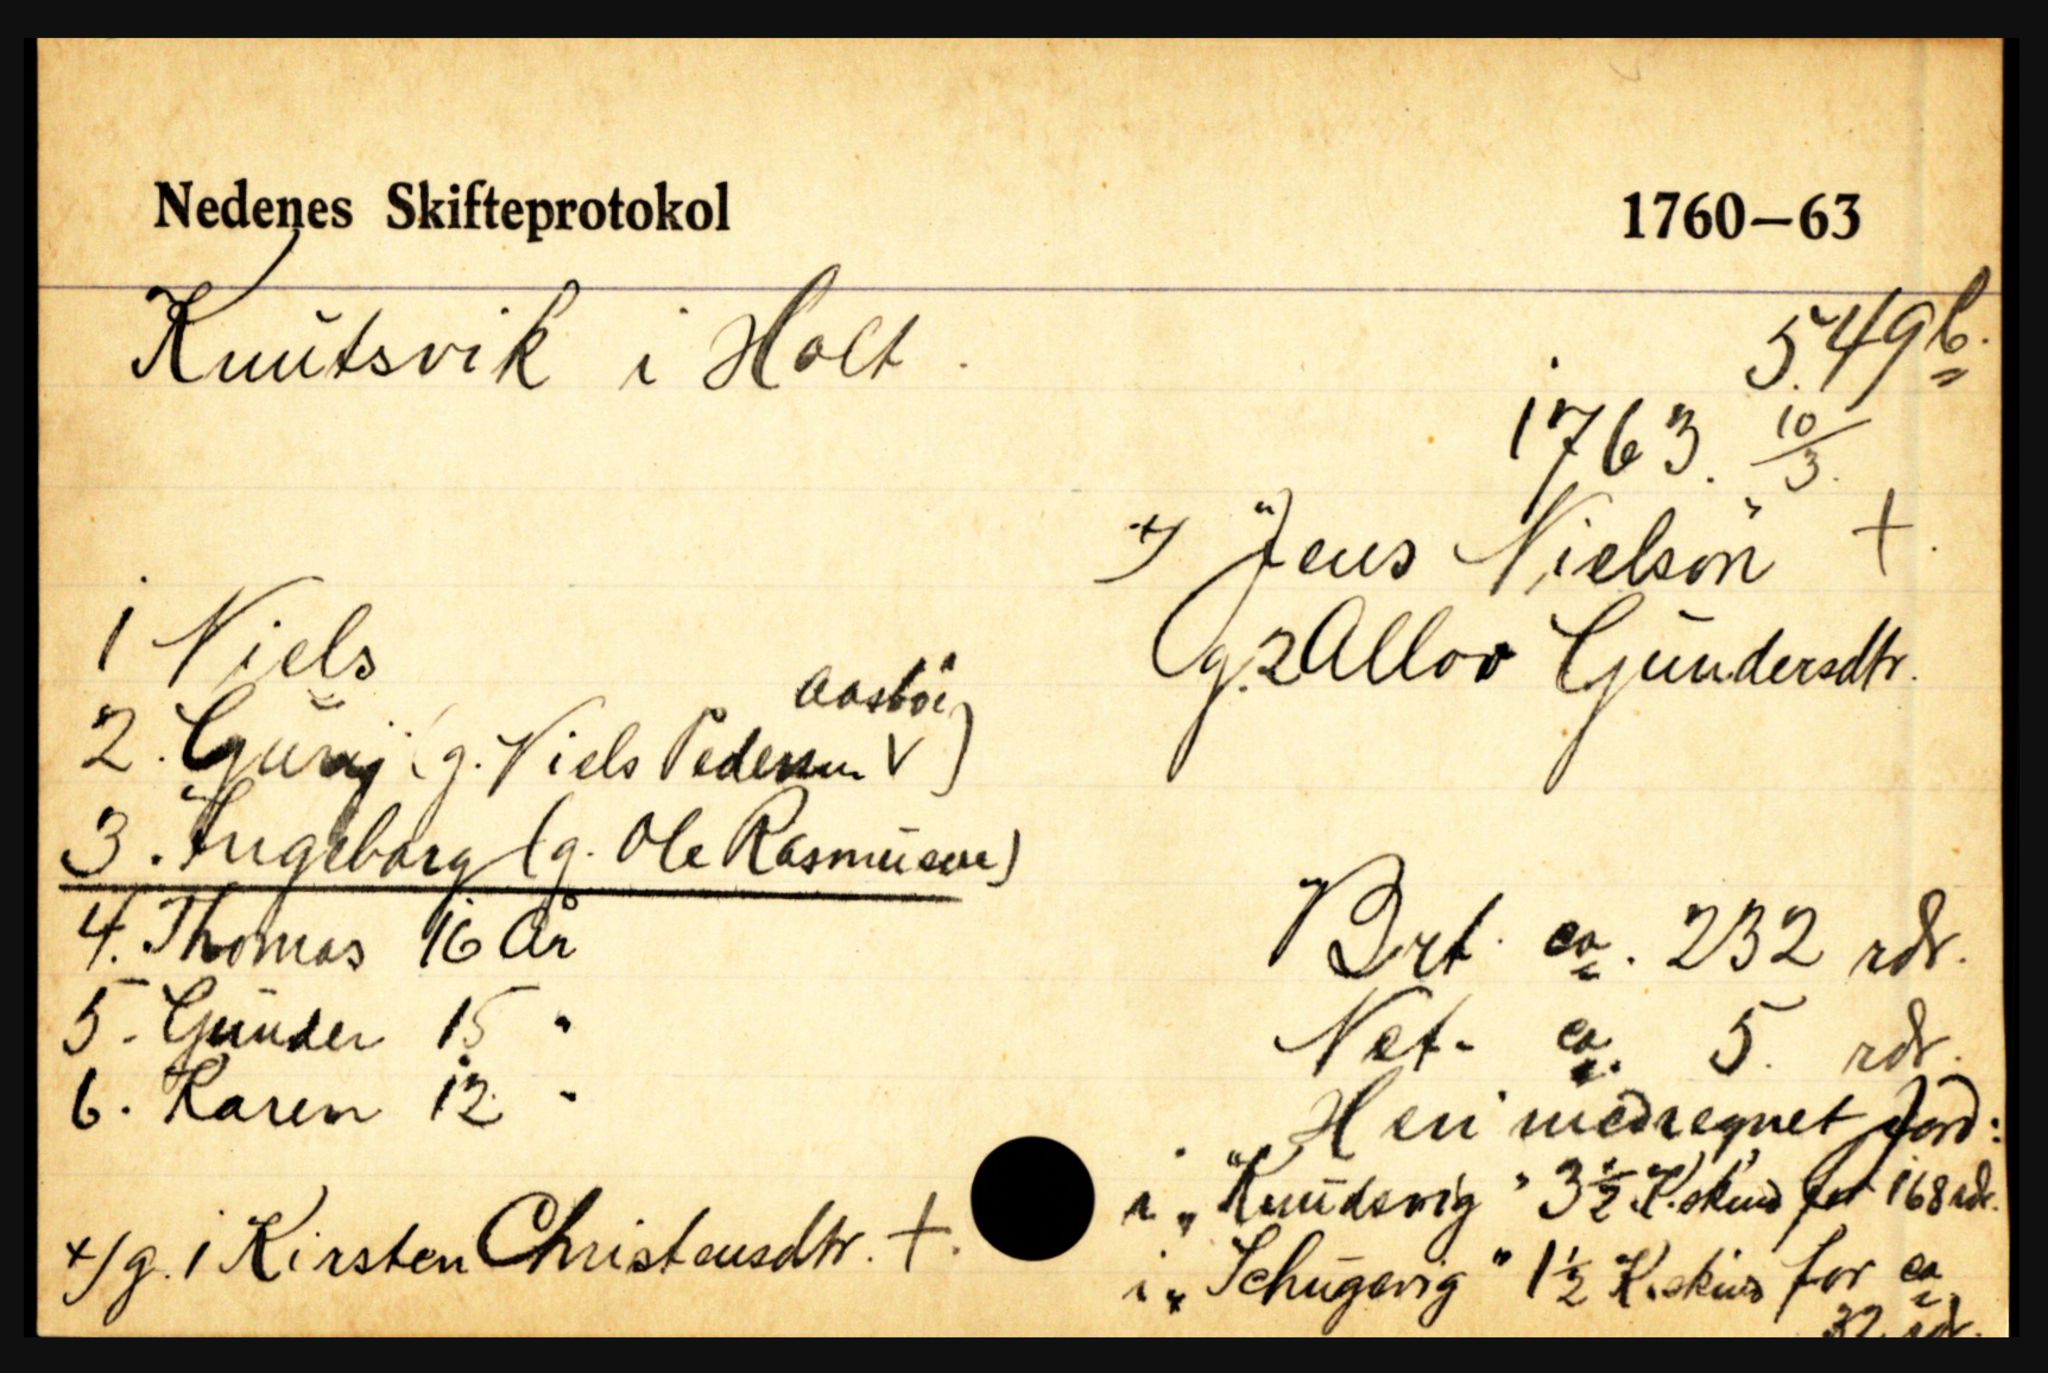 Nedenes Skifteprotokol 1760–63
Knutsvik i Holt.
549b.
1763. 10/3.
+) "Jens Nielsön" +.
(g. 2 Allov Gundersdtr.
1 Niels
2. Gurij (g. Niels Pedersen V Aasböe)
3. Ingeborg (g. Ole Rasmusen)
4. Thomas 16 År
5. Gunder 15 "
6. Karen 12 "
Brt. ca. 232 rdr.
Net. ca. 5. rdr.
Heri medregnet Jord:
i "Knudsvig" 3 1/2 K.skind for 168 rdr.
i " 1 1/2 K.skind for ca.
32 rdr.
+/g. 1 Kirsten Christensdtr. +.